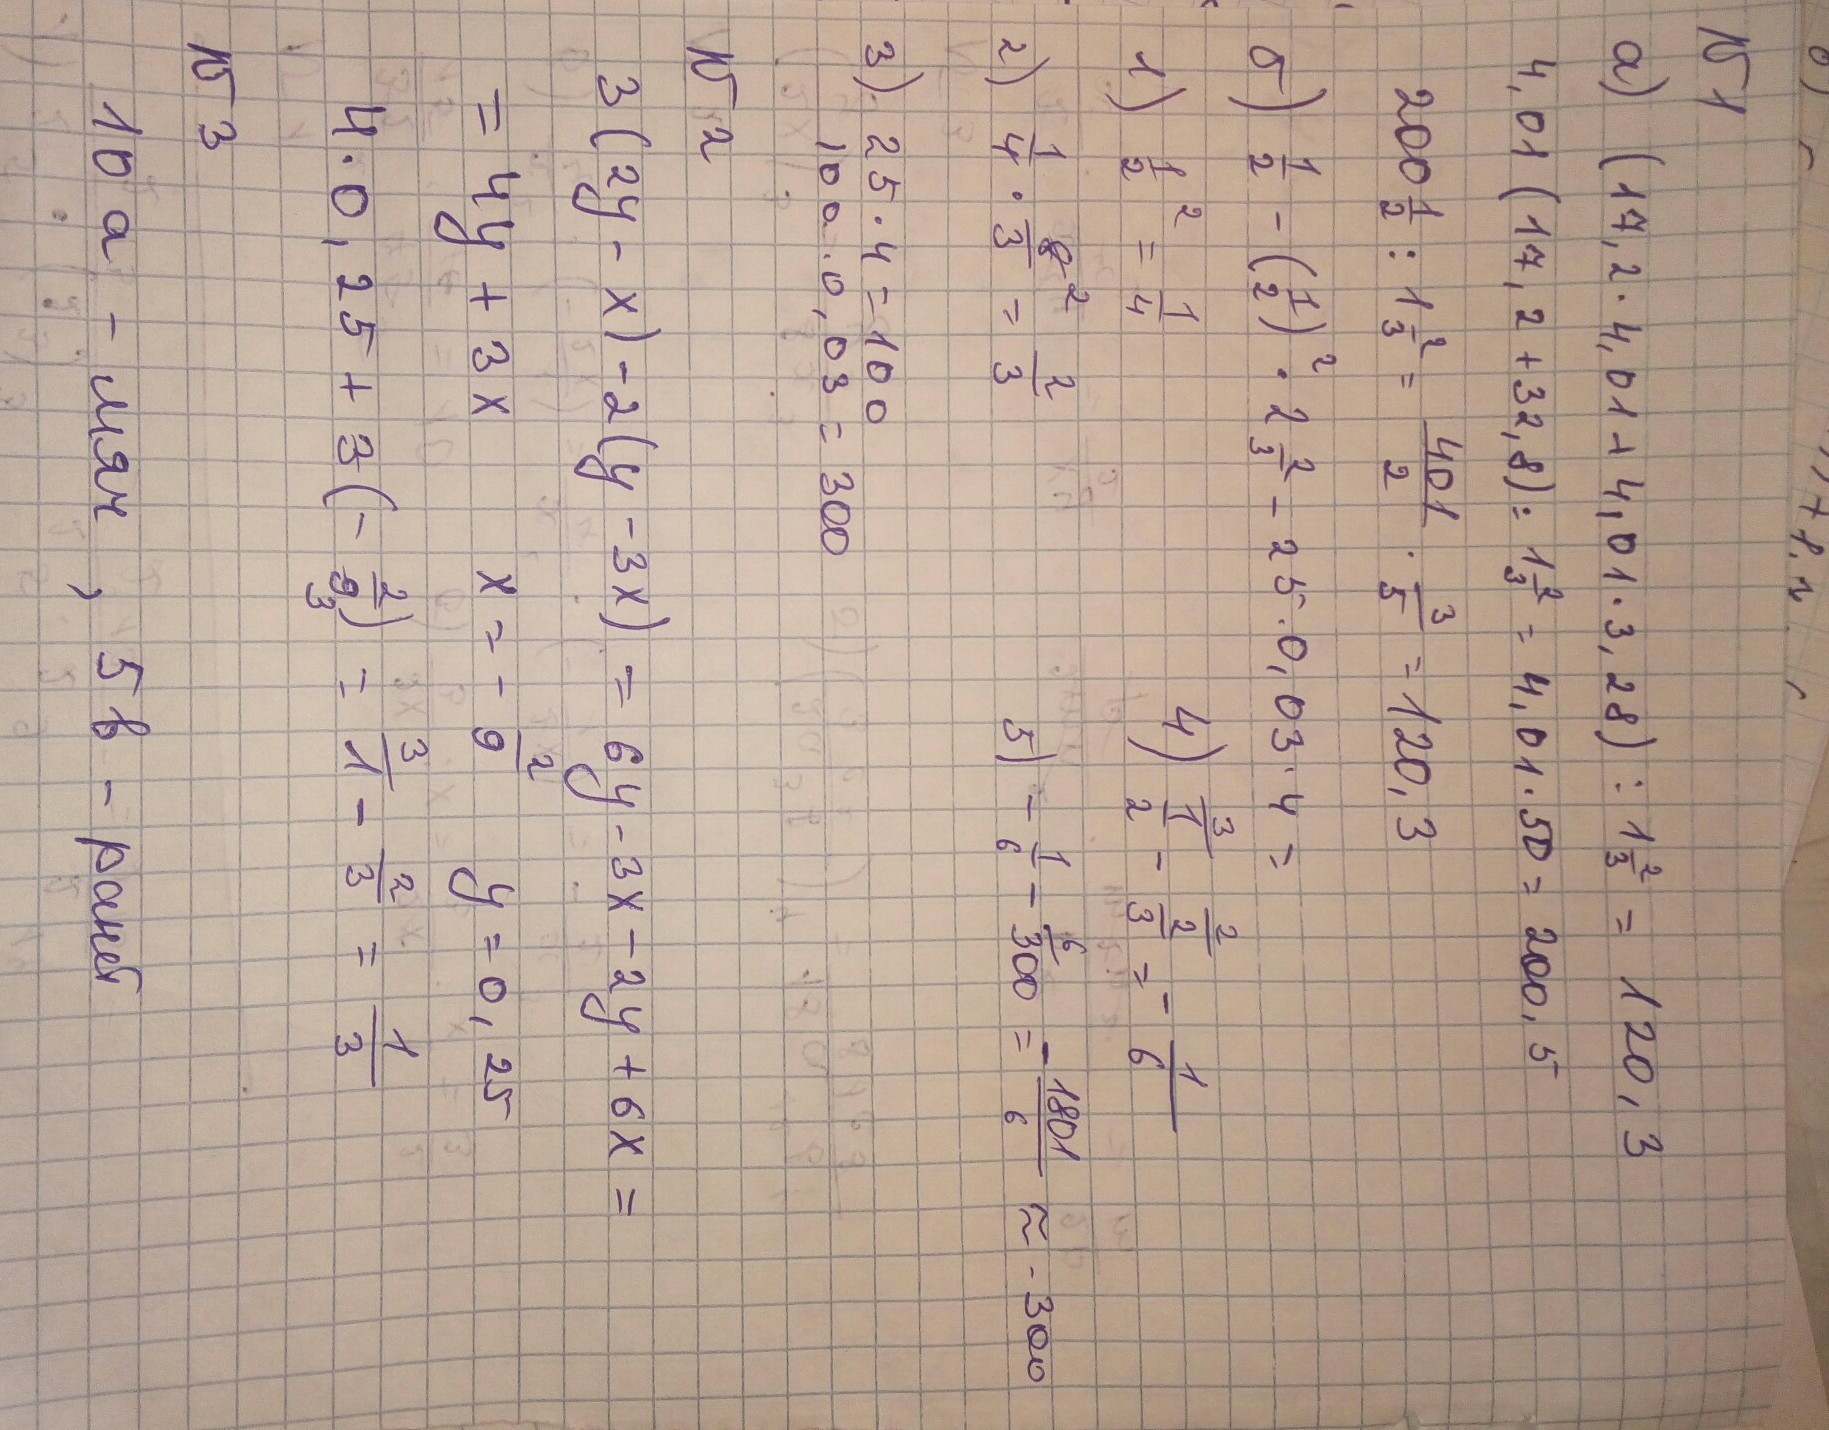 №1
а) (17,2 · 4,01 + 4,01 · 3,28) : 1 2/3 = 120,3
4,01 (17,2 + 32,8) : 1 2/3 = 4,01 · 50 = 200,5
200 1/2 : 1 2/3 = 401/2 · 3/5 = 120,3
б) 1/2 - (1/2)² · 2 2/3 - 25 · 0,03 · 4 =
1) 1/2² = 1/4
2) 1/4 · 8²/3 = 2/3
3) 25 · 4 = 100
100 · 0,03 = 300
4) 1³/2 - 2²/3 = - 1/6
5) - 1/6 - 300⁶ = - 1801/6 ≈ - 300
№2
3(2y - x) - 2(y - 3x) = 6y - 3x - 2y + 6x =
= 4y + 3x x = - 2/9 y = 0,25
4 · 0,25 + 3(- 2/9₃) = 1³ - 2/3 = 1/3
№3
10 a - мяч, 5 в - ранец